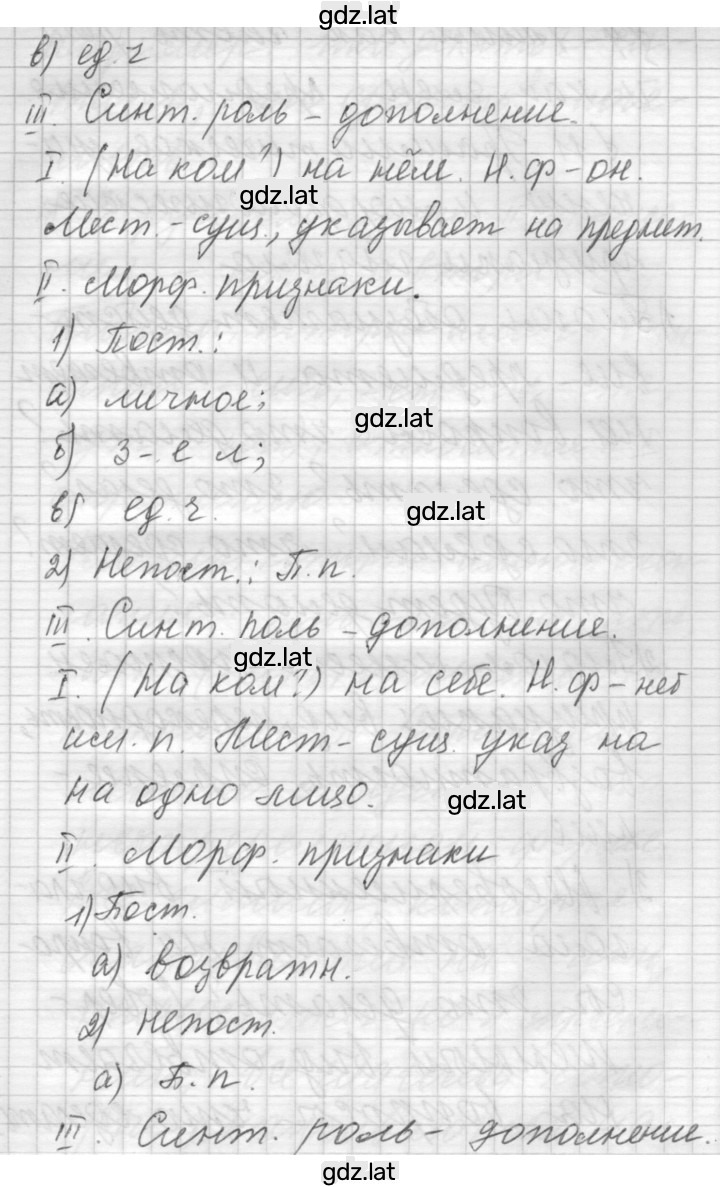 gdz.lat
в) ед. ч
III. Синт. роль – дополнение.
I. (На ком?) на нём. Н. ф – он.
gdz.lat
Мест. – сущ., указывает на предмет.
II. Морф. признаки.
1) Пост.:
а) личное;
gdz.lat
б) 3 – е л;
в) ед. ч.
gdz.lat
2) Непост.: П. п.
III. Синт. роль – дополнение.
gdz.lat
I. (На ком?) на себе. Н. ф – нет
им. п. Мест – сущ. указ на
на одно лицо.
gdz.lat
II. Морф. признаки
1) Пост.
а) возвратн.
2) непост.
а) П. п.
III. Синт. роль – дополнение.
gdz.lat